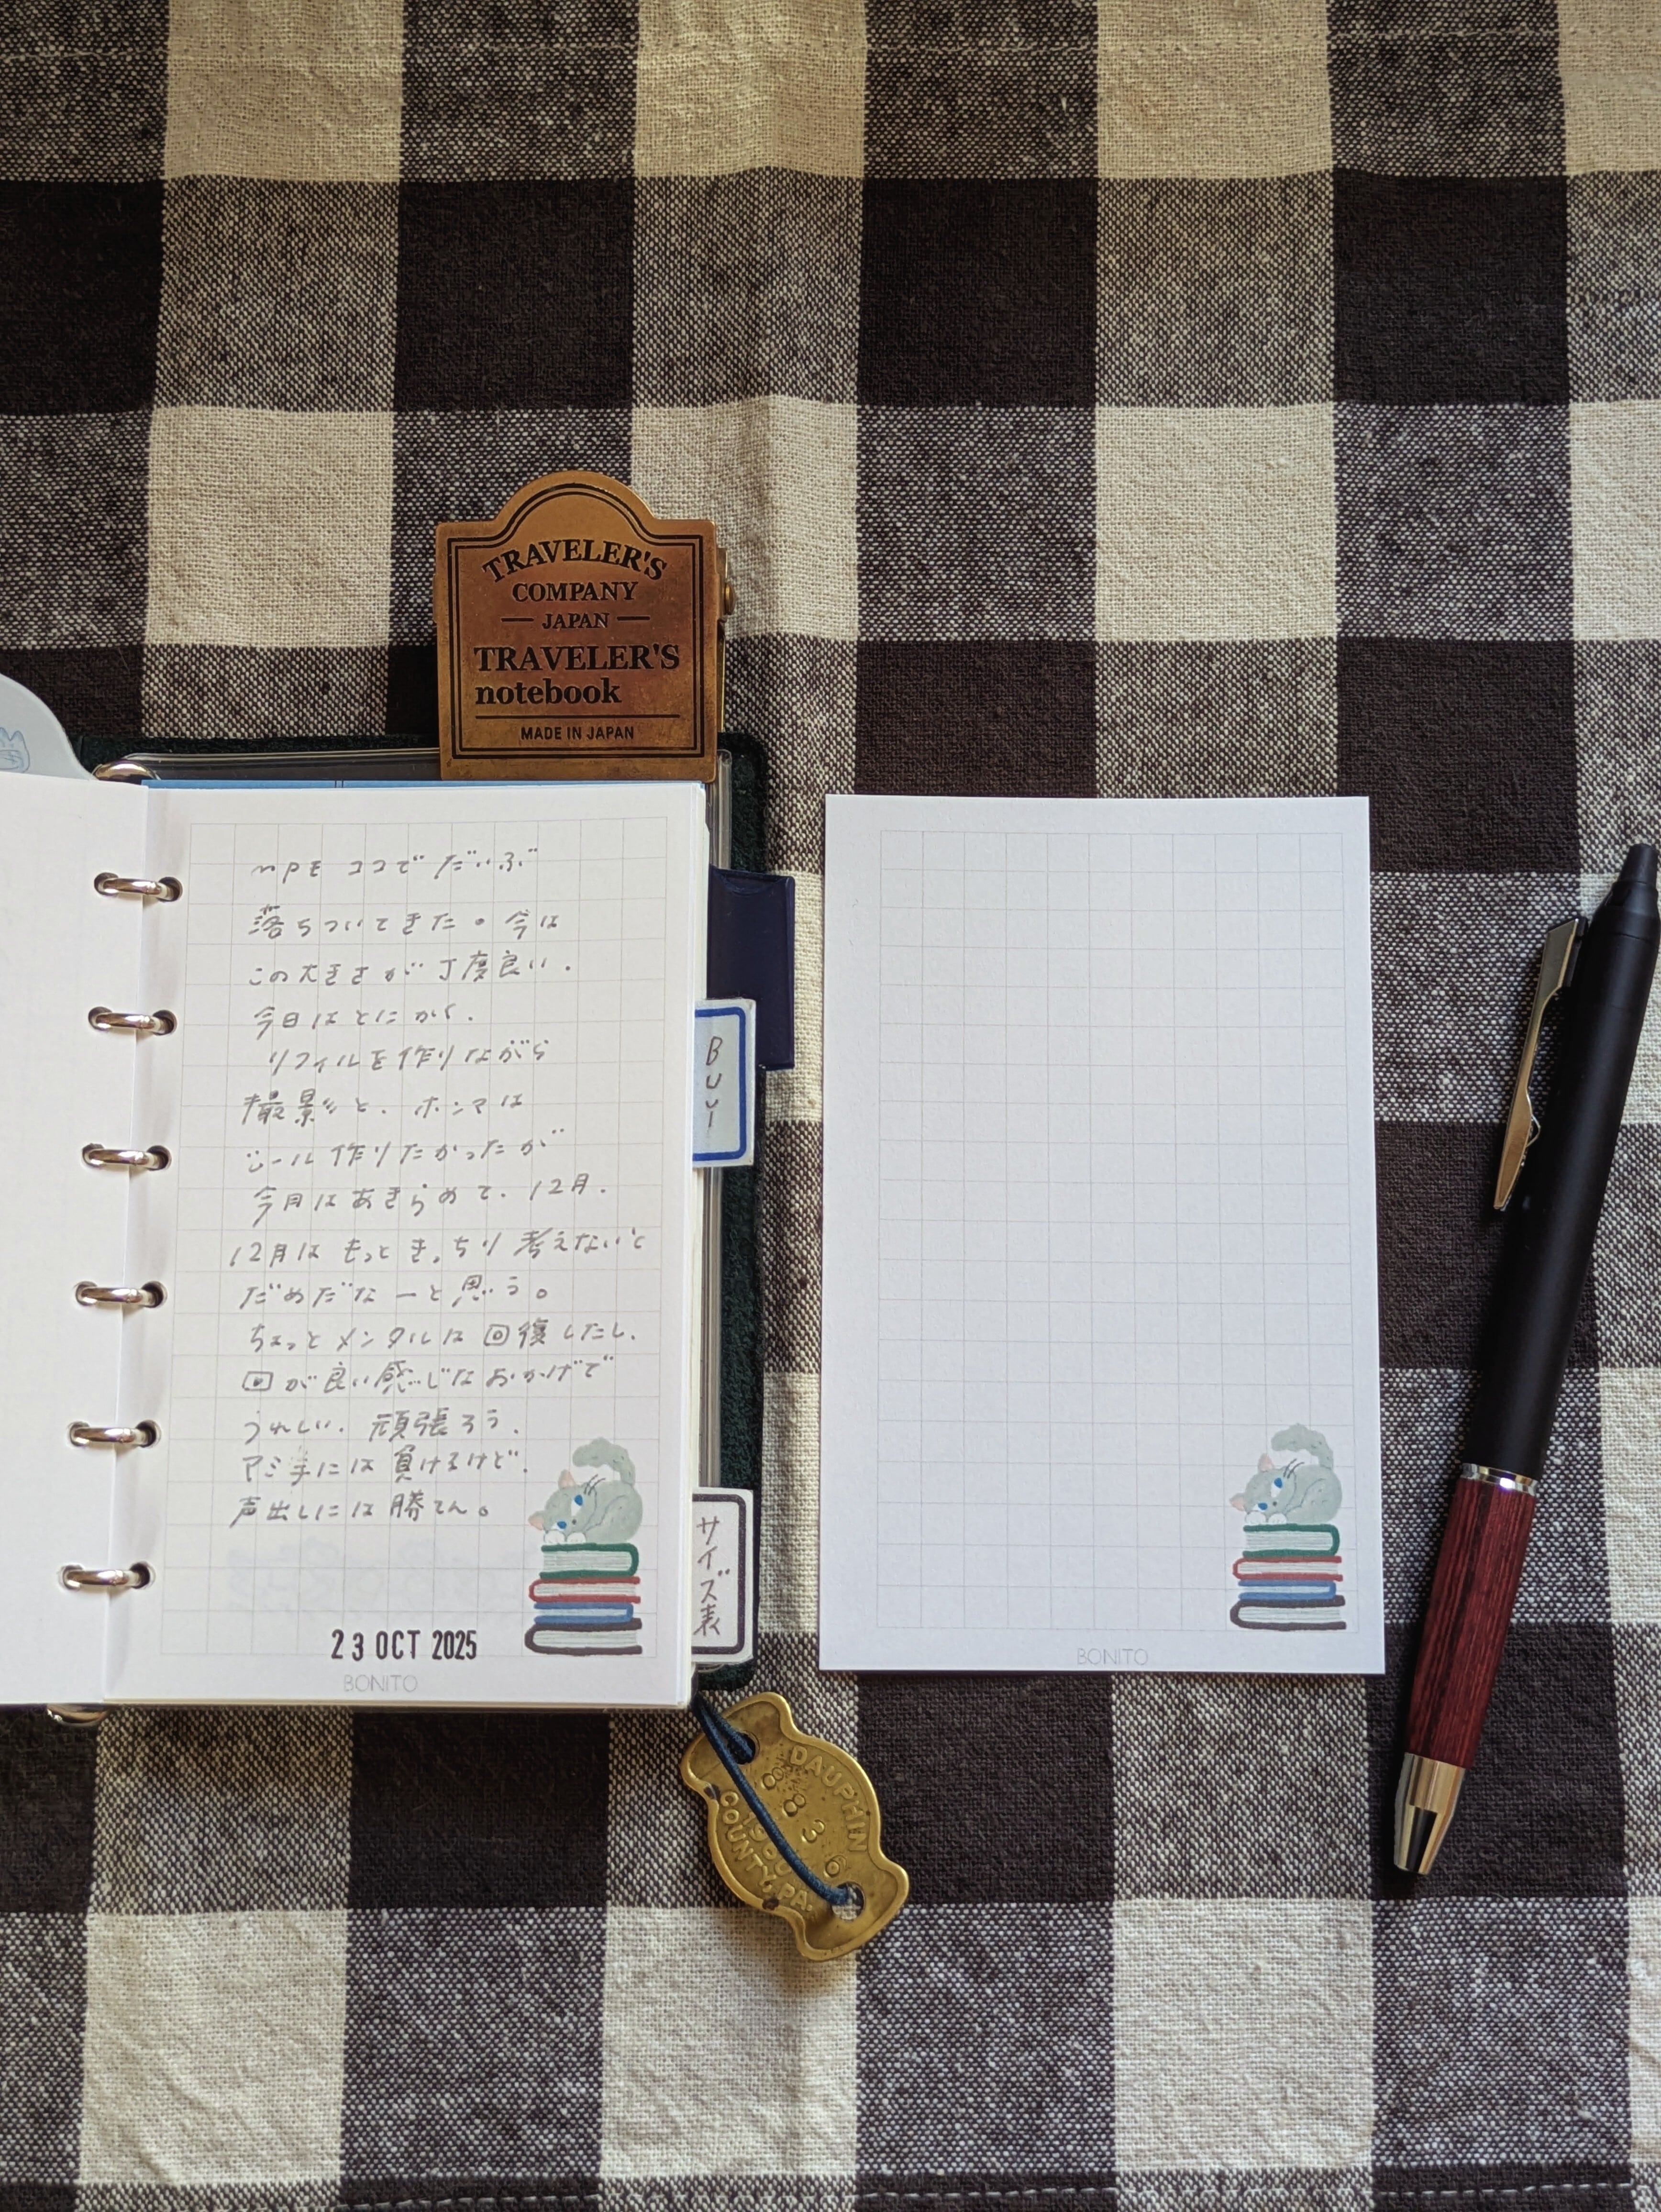 TRAVELER'S
COMPANY
JAPAN
TRAVELER'S
notebook
MADE IN JAPAN
mPもココでだいぶ
落ちついてきた。今は
この大きさが丁度良い.
今日はとにかく.
リフィルを作りながら
撮影と.ホンマは
シール作りたかったが
今月はあきらめて.12月.
12月はもっときっちり考えないと
だめだなーと思う。
ちょっとメンタルは回復したし.
が良い感じなおかげで
うれしい.頑張ろう.
アミ手には負けるけど.
声出しには勝てん。
23 OCT 2025
BONITO
BUY
サイズ表
BONITO
DAUPHIN
8836
COUNTY, PA.